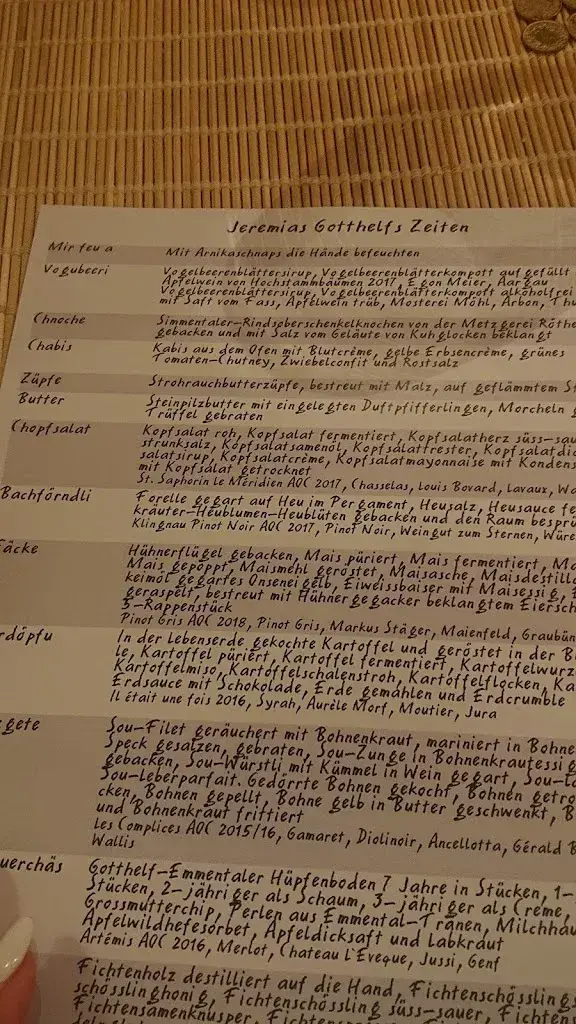 Jeremias Gotthelfs Zeiten
Mir feu a Mit Arnikaschnaps die Hände befeuchten
Vogubeeri Vogelbeerenblättersirup, Vogelbeerenblätterkompott auf gefüllt
Apfelwein von Hochstammbäumen 2017, Egon Meier, Aargau
Vogelbeerenblättersirup, Vogelbeerenblätterkompott alkoholfrei
mit Saft vom Fass, Apfelwein trüb, Mosterei Möhl, Arbon, Thu
Chnoche Simmentaler-Rindsoberschenkelknochen von der Metzgerei Röthe
gebacken und mit Salz vom Geläute von Kuhglocken beklangt
Chabis Kabis aus dem Ofen mit Blutcrème, gelbe Erbsencrème, grünes
Tomaten-Chutney, Zwiebelconfit und Rostsalz
Züpfe Strohrauchbutterzüpfe, bestreut mit Malz, auf geflämmtem St
Butter Steinpilzbutter mit eingelegten Duftpfifferlingen, Morcheln
Trüffel gebraten
Chopfsalat Kopfsalat roh, Kopfsalat fermentiert, Kopfsalatherz süss-sau
strunksalz, Kopfsalatsamenöl, Kopfsalattrester, Kopfsalatdi
salatsirup, Kopfsalatcrème, Kopfsalatmayonnaise mit Kondens
mit Kopfsalat getrocknet
St. Saphorin Le Méridien AOC 2017, Chasselas, Louis Bovard, Lavaux, Wa
Bachförndli Forelle gegart auf Heu im Pergament, Heusalz, Heusauce fe
kräuter-Heublumen-Heublüten gebacken und den Raum besprü
Klingnau Pinot Noir AOC 2017, Pinot Noir, Weingut zum Sternen, Würe
äcke Hühnerflügel gebacken, Mais püriert, Mais fermentiert, Ma
Mais gepöppt, Maismehl geröstet, Maisasche, Maisdestilla
keimöl gegartes Onseneigelb, Eiweissbaiser mit Maisessig,
geraspelt, bestreut mit Hühnergegacker beklangtem Eiersch
5-Rappenstück
Pinot Gris AOC 2018, Pinot Gris, Markus Stäger, Maienfeld, Graubün
rdöpfu In der Lebenserde gekochte Kartoffel und geröstet in der B
le, Kartoffel püriert, Kartoffel fermentiert, Kartoffelwurz
Kartoffelmiso, Kartoffelschalenstroh, Kartoffelflocken, Ka
Erdsauce mit Schokolade, Erde gemahlen und Erdcrumble
Il était une fois 2016, Syrah, Aurèle Morf, Moutier, Jura
gete Sou-Filet geräuchert mit Bohnenkraut, mariniert in Bohne
Speck gesalzen, gebraten, Sou-Zunge in Bohnenkrautessig
gebacken, Sou-Würstli mit Kümmel in Wein gegart, Sou-
Sou-Leberparfait. Gedörrte Bohnen gekocht, Bohnen getro
cken, Bohnen gepellt, Bohne gelb in Butter geschwenkt, B
und Bohnenkraut frittiert
Les Complices AOC 2015/16, Gamaret, Diolinoir, Ancellotta, Gérald B
Wallis
uerchäs Gotthelf-Emmentaler Hüpfenboden 7 Jahre in Stücken, 1-
Stücken, 2-jähriger als Schaum, 3-jähriger als Crème,
Grossmutterchip, Perlen aus Emmental-Tränen, Milchhau
Apfelwildhefesorbet, Apfeldicksaft und Labkraut
Artémis AOC 2016, Merlot, Chateau L'Eveque, Jussi, Genf
Fichtenholz destilliert auf die Hand, Fichtenschössling s
schösslinghonig, Fichtenschössling süss-sauer, Fichten
Fichtensamenknusper, Fichten